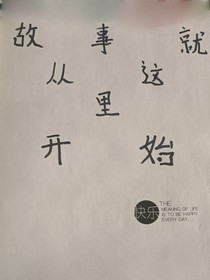 故事就
从这
里
开始
快乐
THE
MEANING OF LIFE
IS TO BE HAPPY
EVERY DAY...